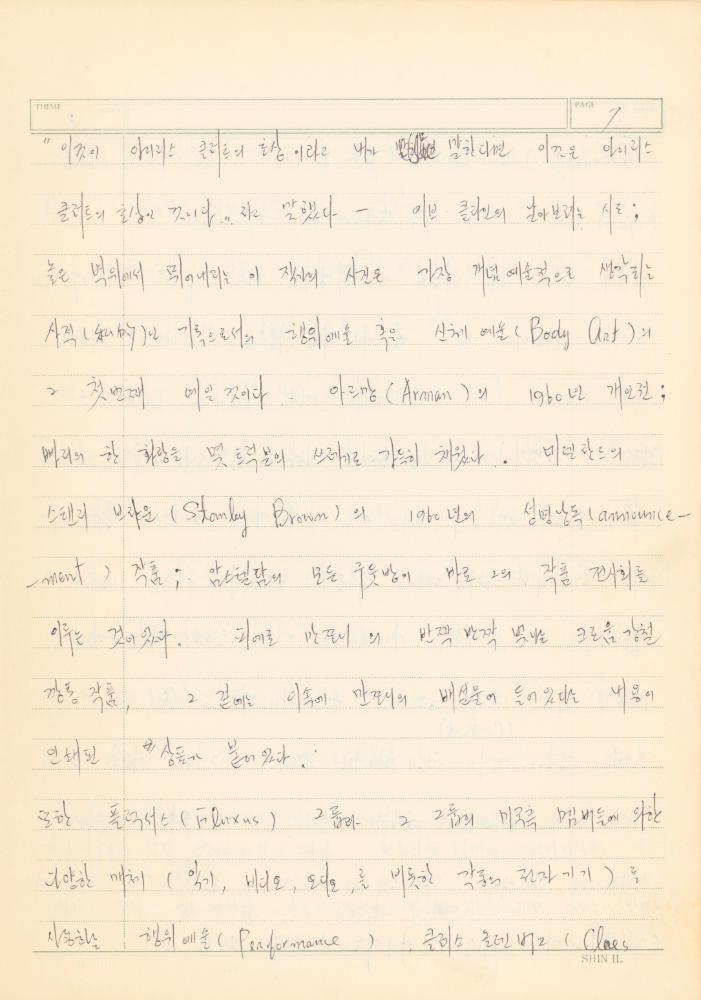 THEME
PAGE 7
"이것이 아이리스 클러트의 초상이라고 내가 말한다면 이것은 아이리스
클러트의 초상인 것이다"라고 말했다 – 이브 클라인의 날아보려는 시도;
높은 벽위에서 뛰어내리는 이 작가의 사진은 가장 개념예술적으로 생각되는
사적(史的)인 기록으로서의 행위예술 혹은 신체예술(Body Art)의
그 첫번째 예일 것이다. 아르망(Arman)의 1960년 개인전;
빠리의 한 화랑을 몇 트럭분의 쓰레기로 가득히 채웠다. 네델란드의
스탠리 브라운(Stanley Brown)의 1960년의 성명낭독(announce-
-ment) 작품; 암스텔담의 모든 구둣방이 바로 그의 작품 전시회를
이루는 것이었다. 피에로 만조니의 반짝반짝 빛나는 크로움강철
깡통 작품, 그 겉에는 이속에 만조니의 배설물이 들어있다는 내용이
인쇄된 상표가 붙어있다.
또한 플럭서스(Fluxus) 그룹과 그 그룹의 미국측 멤버들에 의한
다양한 매체(악기, 비디오, 오디오,를 비롯한 각종의 전자기기)를
사용하는 행위예술(Performance), 클래스 올덴버그(Claes
SHIN IL